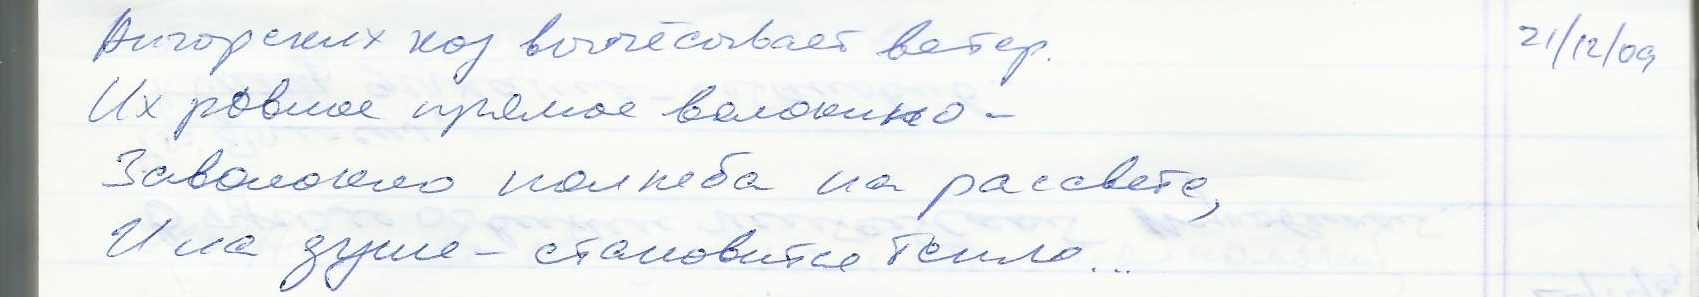 Ангорских коз вычёсывает ветер.
21/12/09
Их ровное прямое волокно –
Заволокло полнеба на рассвете,
И на душе – становится тепло...